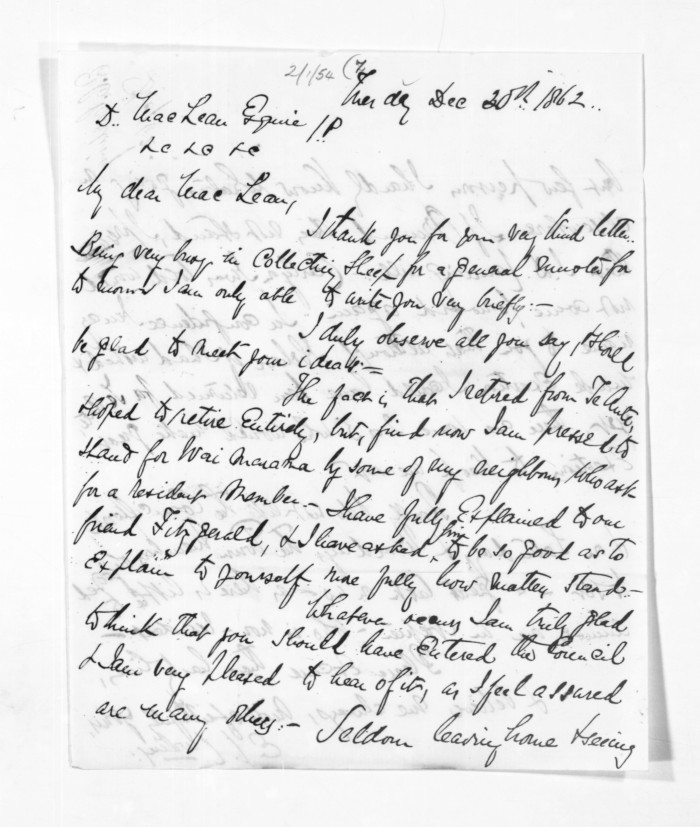 2/1/54 (7
Thursday Dec 20th 1862..
D. MacLean Esquire J P
&c &c &c
My dear MacLean,
I thank you for your very kind letter..
Being very busy in Collecting Sheep for a general muster for
to morrow I am only able to write you very briefly:–
I duly observe all you say, & shall
be glad to meet your ideas:–
The fact is that I retired from Te Aute,
& hoped to retire Entirely, but, find now I am pressed to
stand for Wai Marama by some of my neighbours who ask
for a resident Member – I have fully Explained to our
friend Fitzgerald, & I have asked him to be so good as to
Explain to yourself more fully how matters stand –
Whatever occurs I am truly glad
to think that you should have Entered the Council
& I am very pleased to hear of it, as I feel assured
are many others:– Seldom leaving home & seeing